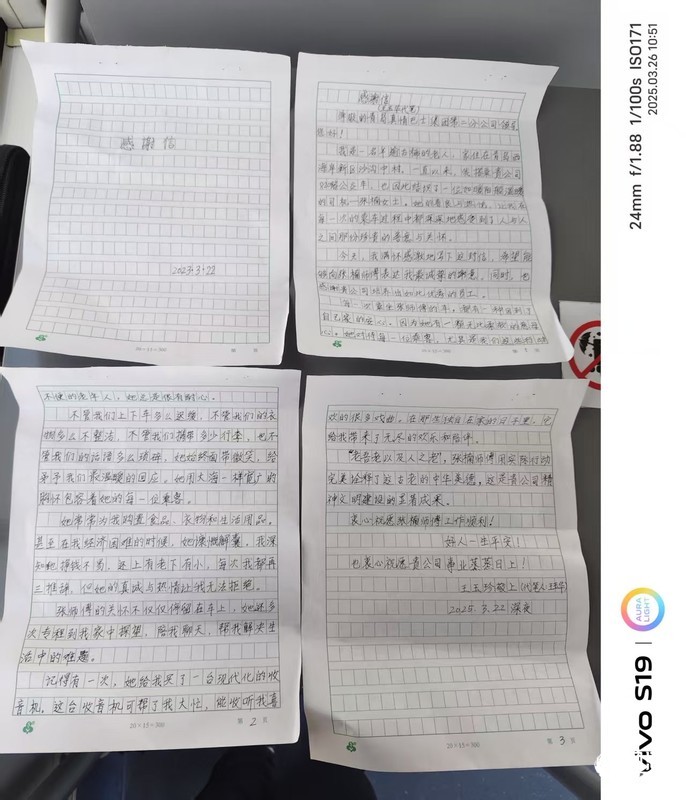 感谢信
2025.3.22
20×15=300
第 页
感谢信
尊敬的青岛真情巴士集团第二分公司领导
您好！
我是一名年逾古稀的老人，家住在青岛西
海岸新区
一直以来，我搭乘贵公司
公交车，也因此结识了一位如
温暖
的司机—张楠女士。她的善良与热情，让我在
每一次的乘车过程中都深深地感受到了人与人
之间那份珍贵的善意与关怀。
今天，我满怀感激地写下这封信，希望能
够向张楠师傅表达我最诚挚的谢意，同时，也
感谢贵公司培养出如此优秀的员工。
每一次乘坐张师傅的车，都有一种回到了
自己家的安心。因为她有一颗无比善良的
心。她对待每一位乘客，尤其是我们这些行动
20×15=300
第 1 页
不便的老年人，她总是很有耐心。
不管我们上下车多么迟缓，不管我们的衣
物多么不整洁，不管我们携带多少行李，也不
管我们的话语多么琐碎，她始终面带微笑，给
予我们最温暖的回应。她用大海一样宽广的
胸怀包容着她的每一位乘客。
她常常为我购置食品、衣物和生活用品。
甚至在我经济困难的时候，她慷慨解囊，我深
知她挣钱不易，还上有老下有小，每次我都再
三推辞，但她的真诚与热情让我无法拒绝。
张师傅的关怀不仅仅停留在车上，她还多
次专程到我家中探望，陪我聊天，帮我解决生
活中的难题。
记得有一次，她给我买了一台现代化的收
音机。这台收音机可帮了我大忙，能收听我喜
20×15=300
第 2 页
欢的很多戏曲。在那些独自在家的日子里，它
给我带来了无尽的欢乐和陪伴。
"老吾老以及人之老"，张楠师傅用实际行动
完美诠释了这古老的中华美德，这是贵公司精
神文明建设的显著成果。
衷心祝愿张楠师傅工作顺利！
好人一生平安！
也衷心祝愿贵公司事业蒸蒸日上！
王玉珍敬上
2025.3.22 深夜
20×15=300
第 3 页
24mm f/1.88 1/100s ISO171
2025.03.26 10:51
vivo S19
AURA
LIGHT